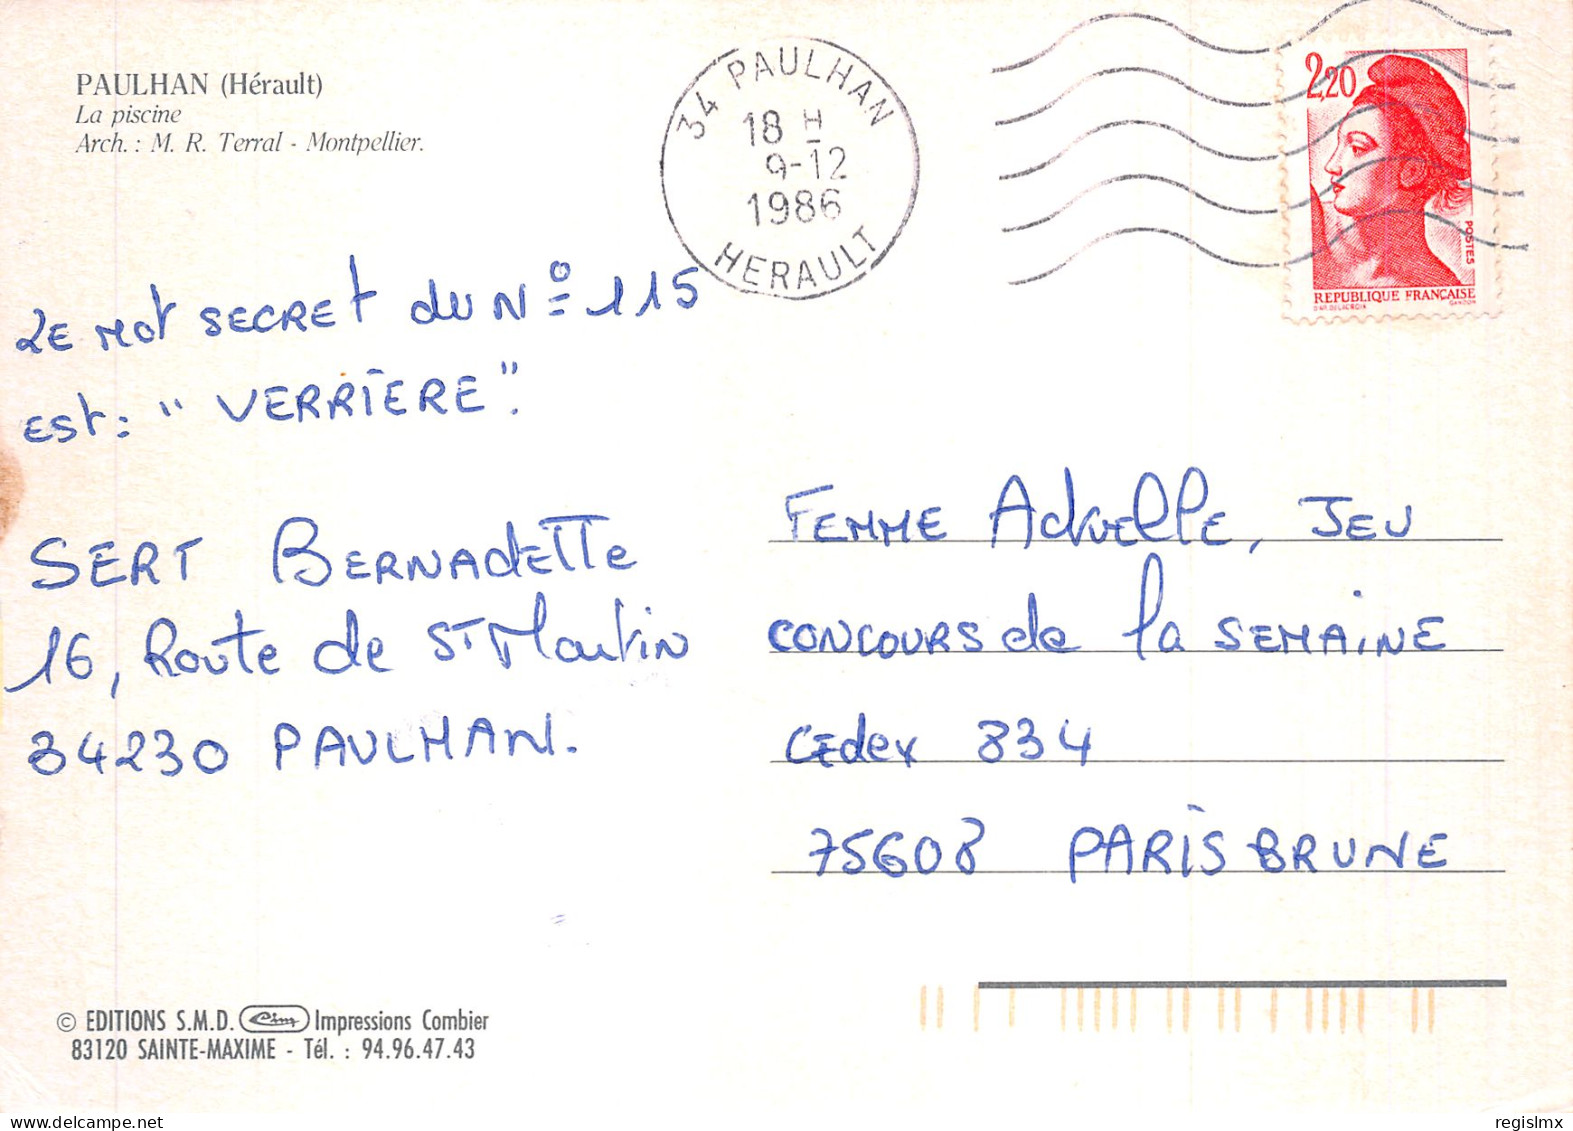 PAULHAN (Hérault)
La piscine
Arch. : M. R. Terral - Montpellier.
34 PAULHAN
18 H
9-12
1986
HERAULT
2,20
POSTES
REPUBLIQUE FRANÇAISE
D'AP. DELACROIX GANDON
2E MOT SECRET DU N° 115
EST : " VERRIERE ".
SERT BERNADETTE
16, Route de ST Martin
34230 PAULHAN.
FEMME ActuellE, JEU
CONCOURS de la SEMAINE
CEdex 834
75608 PARIS BRUNE
© EDITIONS S.M.D. Cim Impressions Combier
83120 SAINTE-MAXIME - Tél. : 94.96.47.43
regislmx